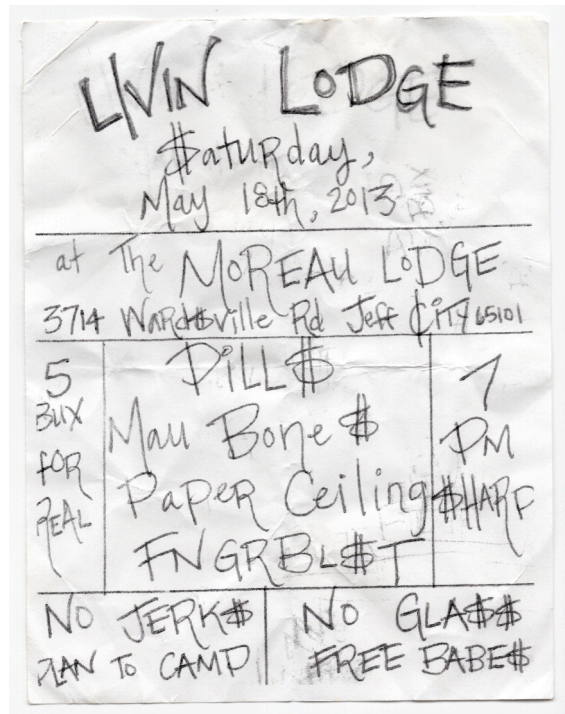 LIVIN LODGE
$aturday,
May 18th, 2013
at The MOREAU LODGE
3714 Ward$ville Rd Jeff City 65101
5
BUX
FOR
REAL
PiLL$
Mau Bone$
Paper Ceiling
FNGRBL$T
7
PM
$HARP
NO JERK$
PLAN TO CAMP
NO GLA$$
FREE BABE$